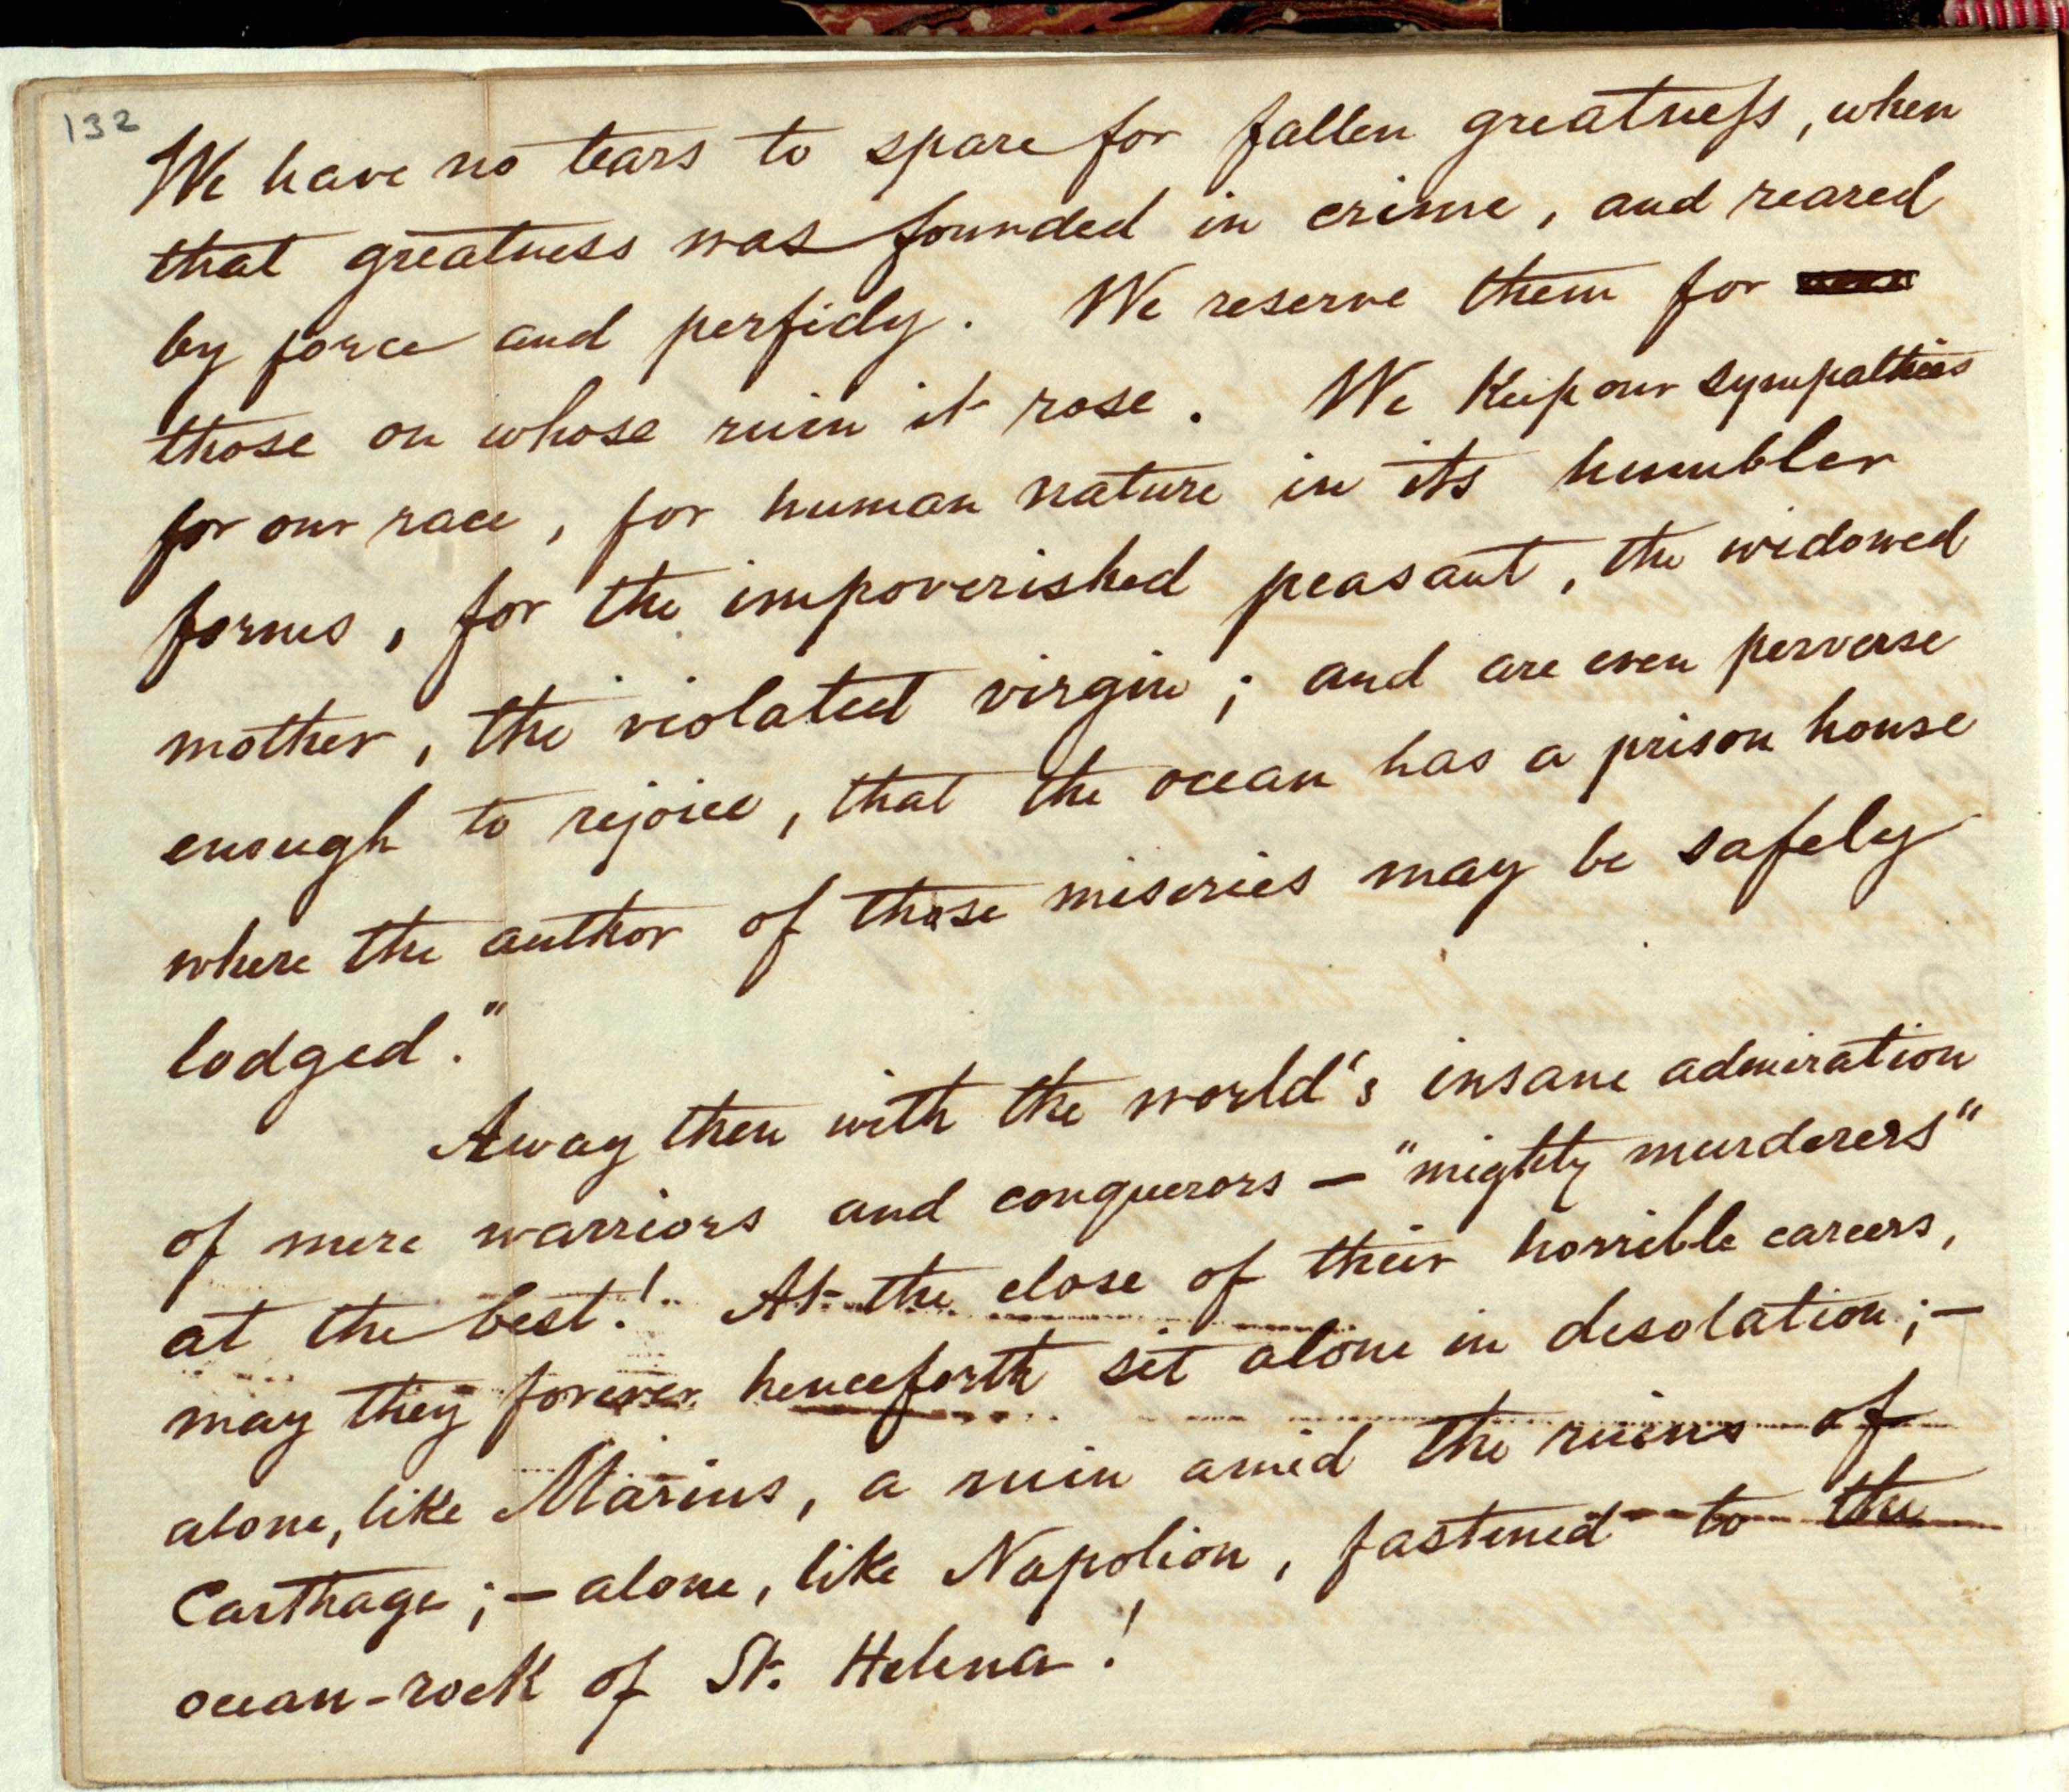 132
We have no tears to spare for fallen greatness, when
that greatness was founded in crime, and reared
by force and perfidy. We reserve them for
those on whose ruin it rose. We keep our sympathies
for our race, for human nature in its humbler
forms, for the impoverished peasant, the widowed
mother, the violated virgin; and are even perverse
enough to rejoice, that the ocean has a prison house
where the author of those miseries may be safely
lodged."
Away then with the world's insane admiration
of mere warriors and conquerors — "mighty murderers"
at the best! At the close of their horrible careers,
may they forever henceforth sit alone in desolation; —
alone, like Marius, a ruin amid the ruins of
Carthage; — alone, like Napolion, fastened to the
ocean-rock of St. Helena!